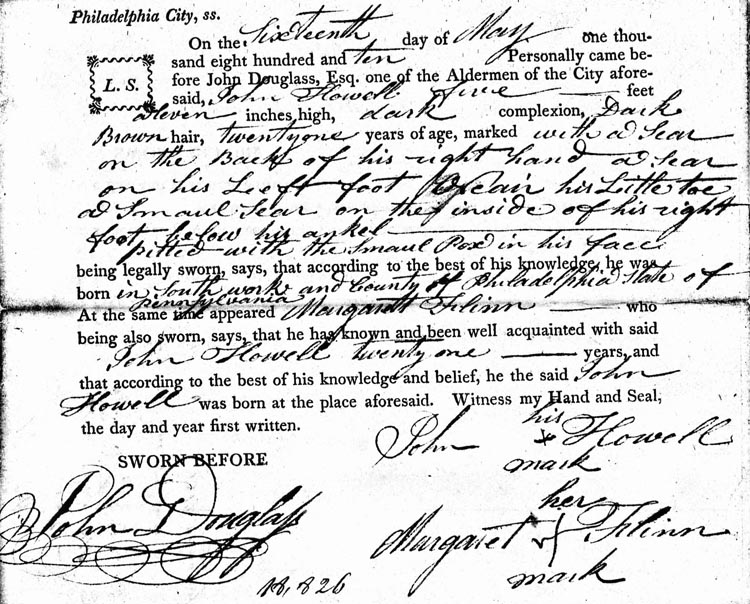 Philadelphia City, ss.
On the Sixteenth day of May one thou-
sand eight hundred and ten Personally came be-
L. S. fore John Douglass, Esq. one of the Aldermen of the City afore-
said, John Howell five feet
Eleven inches high, dark complexion, Dark
Brown hair, twentyone years of age, marked with a Scar
on the Back of his right hand a Scar
on his Leeft foot Neair his Little toe
a Smaul Scar on the inside of his right
foot below his ankel
pitted with the Smaul Pox in his face
being legally sworn, says, that according to the best of his knowledge, he was
born in South work and County of Philadelphia State of
Pennsylvania
At the same time appeared Margarett Flinn who
being also sworn, says, that he has known and been well acquainted with said
John Howell twenty one years, and
that according to the best of his knowledge and belief, he the said John
Howell was born at the place aforesaid. Witness my Hand and Seal,
the day and year first written.
his
John x Howell
mark
SWORN BEFORE
John Douglass
her
Margaret Flinn
mark
18,826